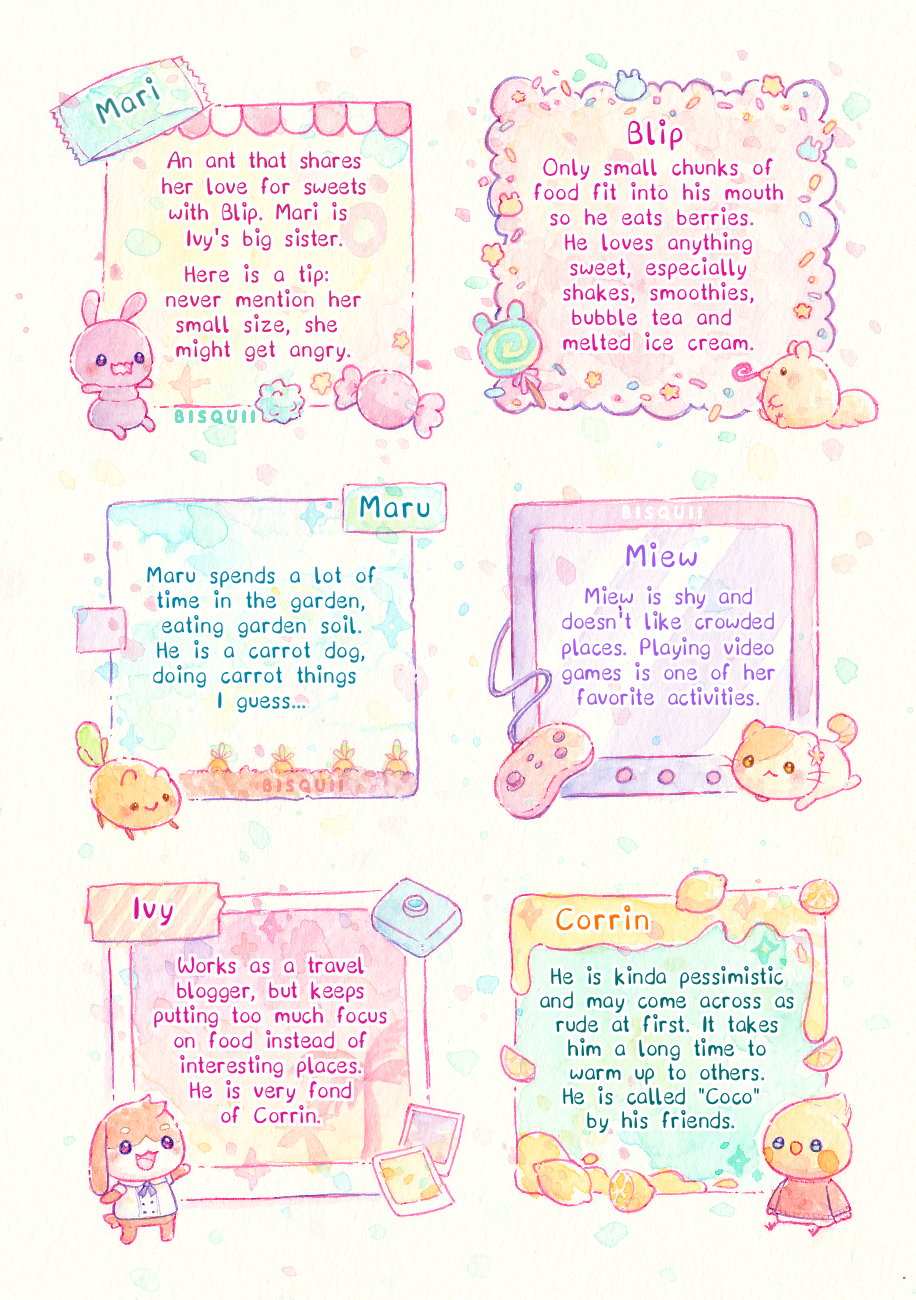 Mari
An ant that shares
her love for sweets
with Blip. Mari is
Ivy's big sister.
Here is a tip:
never mention her
small size, she
might get angry.
BISQUII
Blip
Only small chunks of
food fit into his mouth
so he eats berries.
He loves anything
sweet, especially
shakes, smoothies,
bubble tea and
melted ice cream.
Maru
Maru spends a lot of
time in the garden,
eating garden soil.
He is a carrot dog,
doing carrot things
I guess...
BISQUII
BISQUII
Miew
Miew is shy and
doesn't like crowded
places. Playing video
games is one of her
favorite activities.
Ivy
Works as a travel
blogger, but keeps
putting too much focus
on food instead of
interesting places.
He is very fond
of Corrin.
Corrin
He is kinda pessimistic
and may come across as
rude at first. It takes
him a long time to
warm up to others.
He is called "Coco"
by his friends.